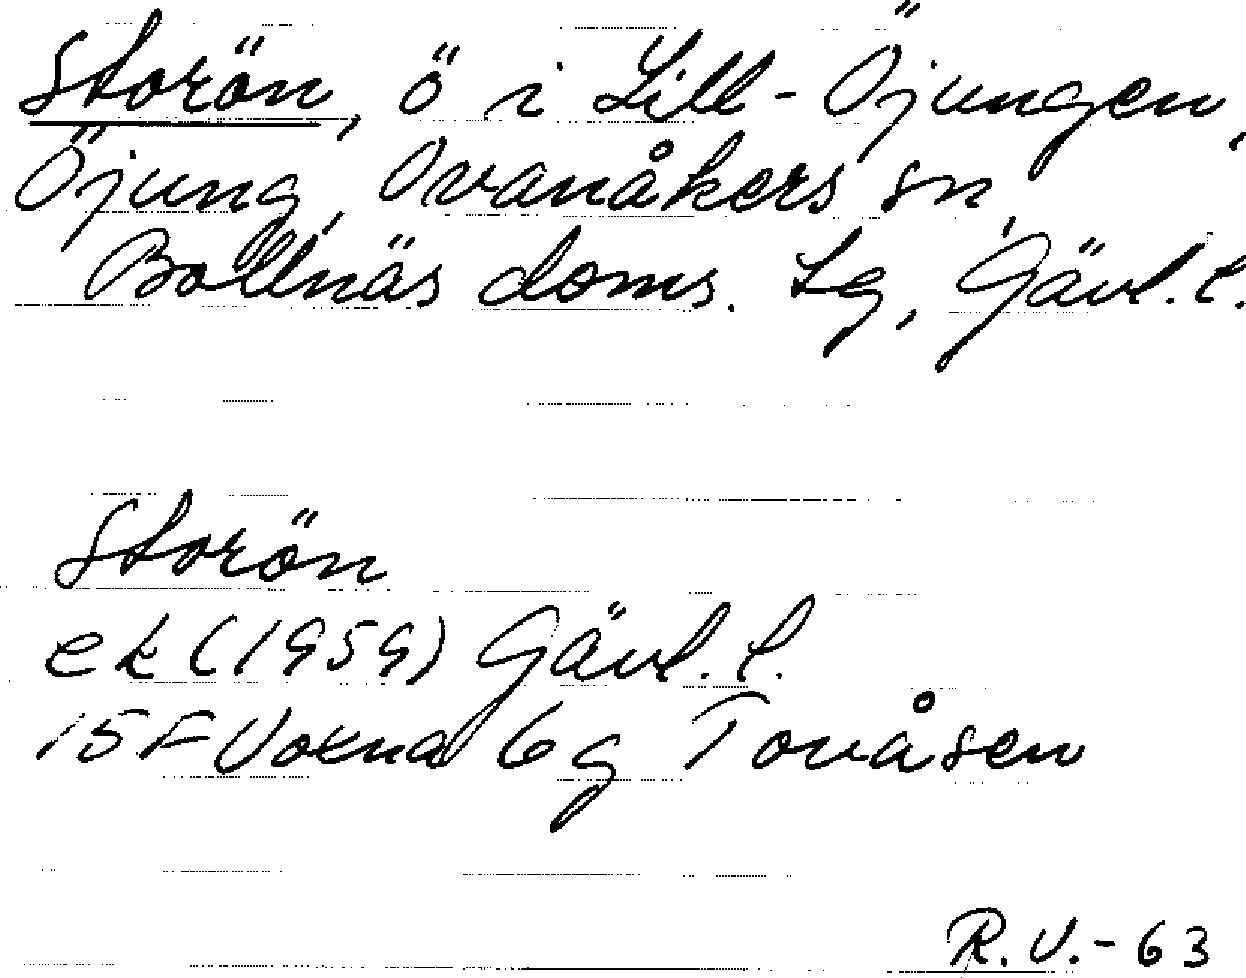 Storön, ö i Lill-Öjungen,
Öjung, Ovanåkers sn,
Bollnäs doms. Lg, Gävl. l.
Storön
ek (1959) Gävl. l.
15F Voxna 6g Tovåsen
R.V.-63